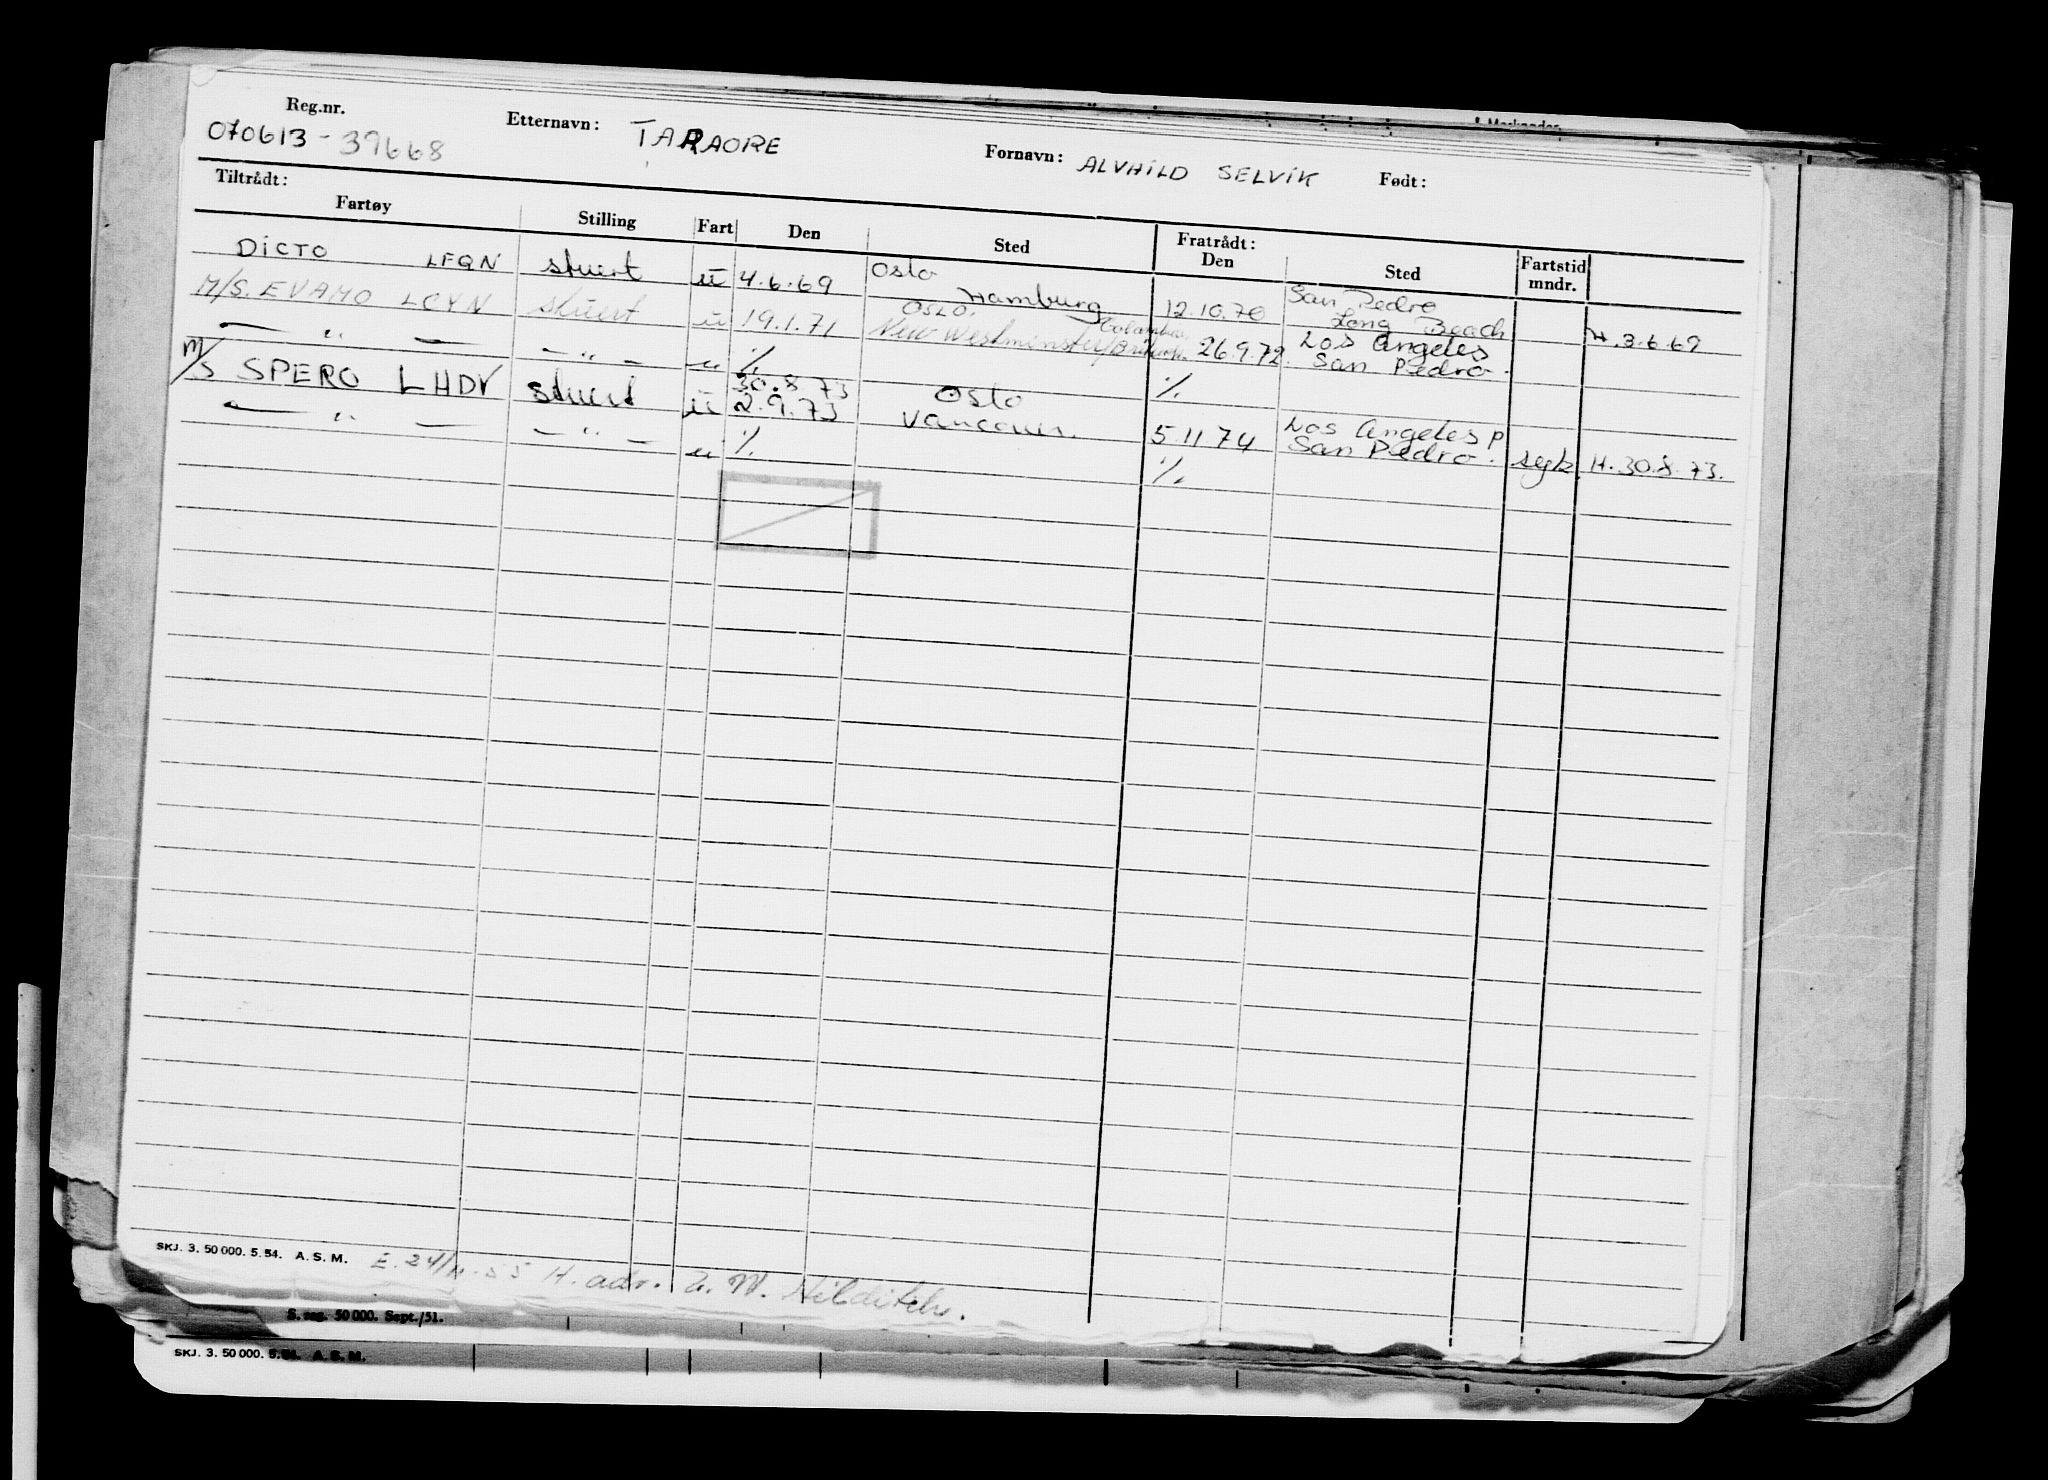 Reg.nr. Etternavn: TARAORE Fornavn: ALVHILD SELVIK Født:
070613-39668
Tiltrådt: Fratrådt:
Fartøy Stilling Fart Den Sted Den Sted Fartstid mndr.
DICTO LFQN stuert u 4.6.69 Oslo Hamburg 12.10.70 San Pedro Long Beach H.3.6.69
M/S. EVAMO LCYN stuert u 19.1.71 OSLO. New Westminster 26.9.72. Los Angeles San Pedro.
— " — — " — u % %
M/S SPERO LHDV stuert u 30.8.73 2.9.73 Oslo Vancouver. 5.11.74 Los Angeles P San Pedro. sgk. H. 30.8.73.
— " — — " — u % %
SKJ. 3. 50 000. 5. 54. A. S. M. E. 24/11-55 H. adr. W. Hilditch.
S. seg. 50 000. Sept./51.
SKJ. 3. 50 000. 5.54. A. S. M.